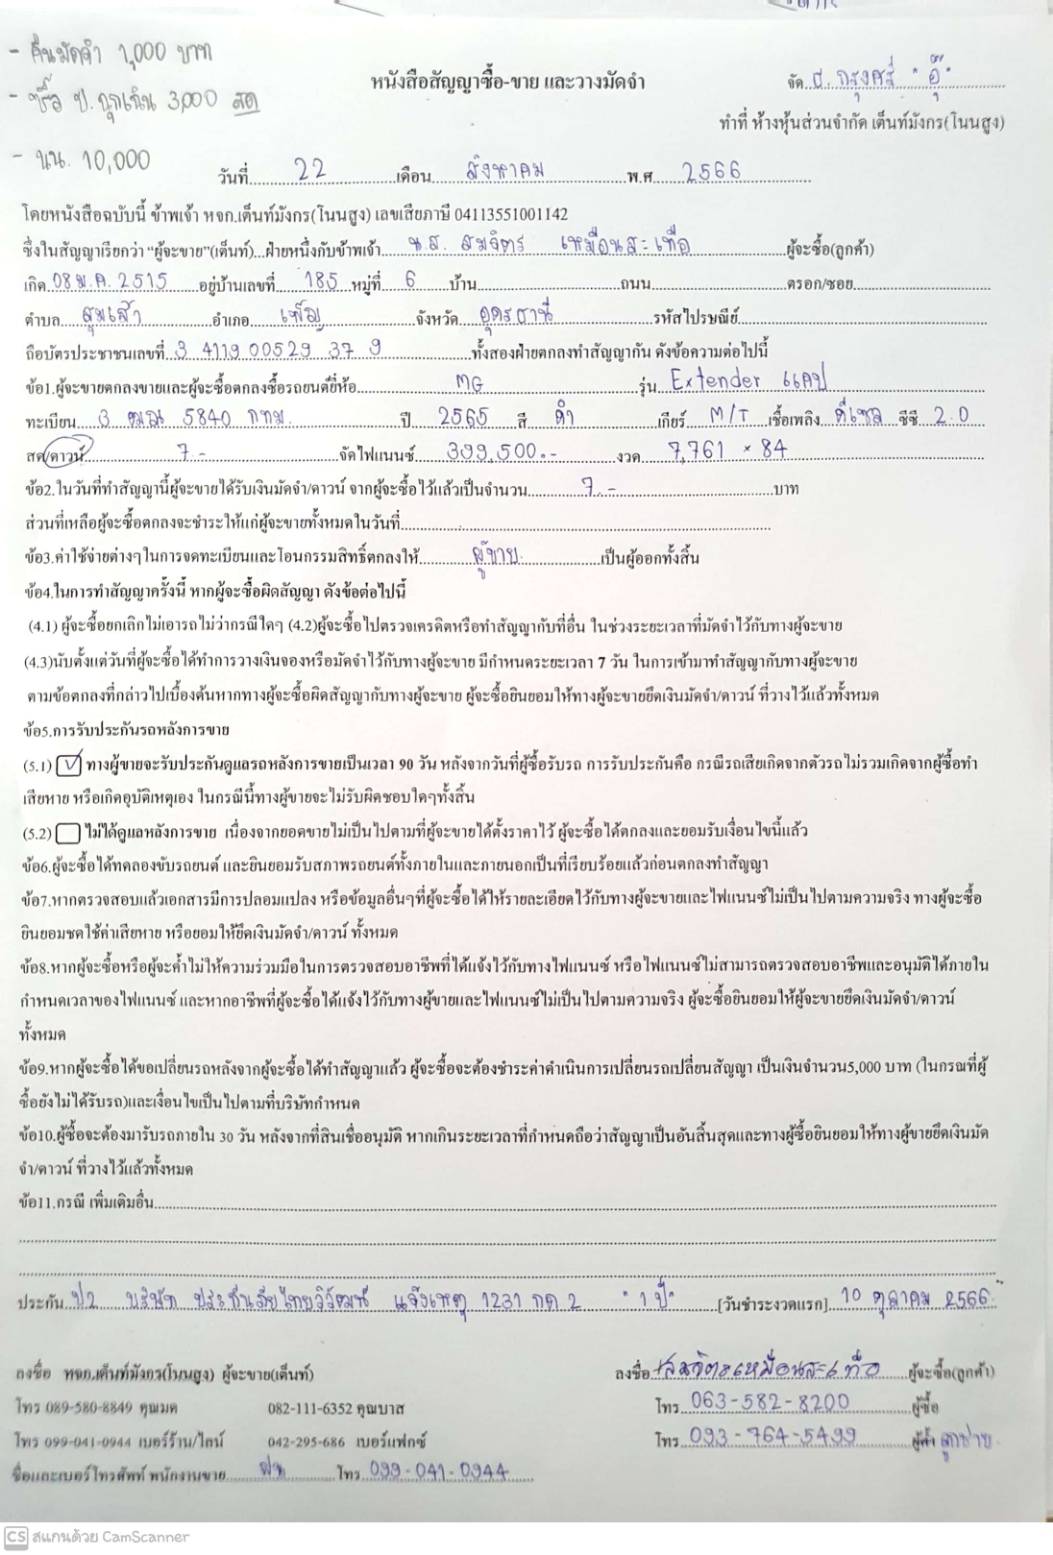 - คืนมัดจำ 1,000 บาท
- ซื้อ ป. ฉุกเฉิน 3,000 สด
- นน. 10,000
หนังสือสัญญาซื้อ-ขาย และวางมัดจำ
จัด...ธ. กรุงศรี "อุ๊"
ทำที่ ห้างหุ้นส่วนจำกัด เต็นท์มังกร(โนนสูง)
วันที่...22...เดือน...สิงหาคม...พ.ศ...2566
โดยหนังสือฉบับนี้ ข้าพเจ้า หจก.เต็นท์มังกร(โนนสูง) เลขเสียภาษี 04113551001142
ซึ่งในสัญญาเรียกว่า "ผู้จะขาย"(เต็นท์)...ฝ่ายหนึ่งกับข้าพเจ้า...น.ส. สมจิตร เหมือนสะเทือ...ผู้จะซื้อ(ลูกค้า)
เกิด...08 ม.ค. 2515...อยู่บ้านเลขที่...185...หมู่ที่...6...บ้าน...ถนน...ตรอก/ซอย...
ตำบล...สุมเส้า...อำเภอ...เพ็ญ...จังหวัด...อุดรธานี...รหัสไปรษณีย์...
ถือบัตรประชาชนเลขที่...3 4119 00529 37 9...ทั้งสองฝ่ายตกลงทำสัญญากัน ดังข้อความต่อไปนี้
ข้อ1.ผู้จะขายตกลงขายและผู้จะซื้อตกลงซื้อรถยนต์ยี่ห้อ...MG...รุ่น...Extender แคป
ทะเบียน...3 ฒฌ 5840 กทม....ปี...2565...สี...ดำ...เกียร์...M/T...เชื้อเพลิง...ดีเซล...ซีซี...2.0
สด/ดาวน์...7.-...จัดไฟแนนซ์...399,500.-...งวด...7,761 × 84
ข้อ2.ในวันที่ทำสัญญานี้ผู้จะขายได้รับเงินมัดจำ/ดาวน์ จากผู้จะซื้อไว้แล้วเป็นจำนวน...7.-...บาท
ส่วนที่เหลือผู้จะซื้อตกลงจะชำระให้แก่ผู้จะขายทั้งหมดในวันที่...
ข้อ3.ค่าใช้จ่ายต่างๆในการจดทะเบียนและโอนกรรมสิทธิ์ตกลงให้...ผู้ขาย...เป็นผู้ออกทั้งสิ้น
ข้อ4.ในการทำสัญญาครั้งนี้ หากผู้จะซื้อผิดสัญญา ดังข้อต่อไปนี้
(4.1) ผู้จะซื้อยกเลิกไม่เอารถไม่ว่ากรณีใดๆ (4.2)ผู้จะซื้อไปตรวจเครดิตหรือทำสัญญากับที่อื่น ในช่วงระยะเวลาที่มัดจำไว้กับทางผู้จะขาย
(4.3)นับตั้งแต่วันที่ผู้จะซื้อได้ทำการวางเงินจองหรือมัดจำไว้กับทางผู้จะขาย มีกำหนดระยะเวลา 7 วัน ในการเข้ามาทำสัญญากับทางผู้จะขาย
ตามข้อตกลงที่กล่าวไปเบื้องต้นหากทางผู้จะซื้อผิดสัญญากับทางผู้จะขาย ผู้จะซื้อยินยอมให้ทางผู้จะขายยึดเงินมัดจำ/ดาวน์ ที่วางไว้แล้วทั้งหมด
ข้อ5.การรับประกันรถหลังการขาย
(5.1) ☑ ทางผู้ขายจะรับประกันดูแลรถหลังการขายเป็นเวลา 90 วัน หลังจากวันที่ผู้ซื้อรับรถ การรับประกันคือ กรณีรถเสียเกิดจากตัวรถไม่รวมเกิดจากผู้ซื้อทำ
เสียหาย หรือเกิดอุบัติเหตุเอง ในกรณีนี้ทางผู้ขายจะไม่รับผิดชอบใดๆทั้งสิ้น
(5.2) ☐ ไม่ได้ดูแลหลังการขาย เนื่องจากยอดขายไม่เป็นไปตามที่ผู้จะขายได้ตั้งราคาไว้ ผู้จะซื้อได้ตกลงและยอมรับเงื่อนไขนี้แล้ว
ข้อ6.ผู้จะซื้อได้ทดลองขับรถยนต์ และยินยอมรับสภาพรถยนต์ทั้งภายในและภายนอกเป็นที่เรียบร้อยแล้วก่อนตกลงทำสัญญา
ข้อ7.หากตรวจสอบแล้วเอกสารมีการปลอมแปลง หรือข้อมูลอื่นๆที่ผู้จะซื้อได้ให้รายละเอียดไว้กับทางผู้จะขายและไฟแนนซ์ไม่เป็นไปตามความจริง ทางผู้จะซื้อ
ยินยอมชดใช้ค่าเสียหาย หรือยอมให้ยึดเงินมัดจำ/ดาวน์ ทั้งหมด
ข้อ8.หากผู้จะซื้อหรือผู้จะค้ำไม่ให้ความร่วมมือในการตรวจสอบอาชีพที่ได้แจ้งไว้กับทางไฟแนนซ์ หรือไฟแนนซ์ไม่สามารถตรวจสอบอาชีพและอนุมัติได้ภายใน
กำหนดเวลาของไฟแนนซ์ และหากอาชีพที่ผู้จะซื้อได้แจ้งไว้กับทางผู้ขายและไฟแนนซ์ไม่เป็นไปตามความจริง ผู้จะซื้อยินยอมให้ผู้จะขายยึดเงินมัดจำ/ดาวน์
ทั้งหมด
ข้อ9.หากผู้จะซื้อได้ขอเปลี่ยนรถหลังจากผู้จะซื้อได้ทำสัญญาแล้ว ผู้จะซื้อจะต้องชำระค่าดำเนินการเปลี่ยนรถเปลี่ยนสัญญา เป็นเงินจำนวน5,000 บาท (ในกรณีที่ผู้
ซื้อยังไม่ได้รับรถ)และเงื่อนไขเป็นไปตามที่บริษัทกำหนด
ข้อ10.ผู้ซื้อจะต้องมารับรถภายใน 30 วัน หลังจากที่สินเชื่ออนุมัติ หากเกินระยะเวลาที่กำหนดถือว่าสัญญาเป็นอันสิ้นสุดและทางผู้ซื้อยินยอมให้ทางผู้ขายยึดเงินมัด
จำ/ดาวน์ ที่วางไว้แล้วทั้งหมด
ข้อ11.กรณี เพิ่มเติมอื่น...
ประกัน...ป2 บริษัท ประกันภัยไทยวิวัฒน์ แจ้งเหตุ 1231 กด 2 "1 ปี"...[วันชำระงวดแรก]...10 ตุลาคม 2566
ลงชื่อ หจก.เต็นท์มังกร(โนนสูง) ผู้จะขาย(เต็นท์) ลงชื่อ...สมจิตร เหมือนสะเทือ...ผู้จะซื้อ(ลูกค้า)
โทร 089-580-8849 คุณมด 082-111-6352 คุณบาส โทร...063-582-8200...ผู้ซื้อ
โทร 099-041-0944 เบอร์ร้าน/ไลน์ 042-295-686 เบอร์แฟกซ์ โทร...093-764-5499...ผู้ค้ำ ลูกชาย
ชื่อและเบอร์โทรศัพท์ พนักงานขาย...โทร...099-041-0944
CS สแกนด้วย CamScanner